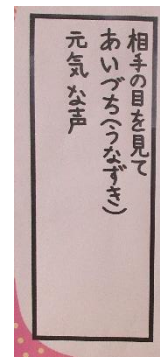 相手の目を見て
あいづち(うなずき)
元気な声